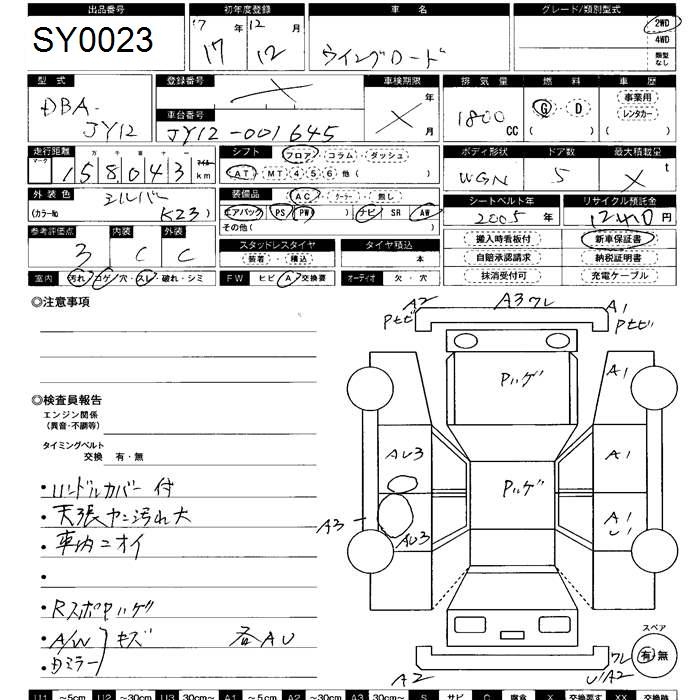 出品番号 初年度登録 車名 グレード/類別型式
SY0023 '17年 12月 2WD
17 12 ウイングロード 4WD
類型なし
型式 登録番号 車検期限 排気量 燃料 車歴
DBA- X 年 事業用
JY12 車台番号 X 月 1800cc G・D レンタカー
JY12-001645
走行距離 シフト フロア・コラム・ダッシュ ボディ形状 ドア数 最大積載量
マーク 万 千 百 十 一 マイル
158,043 km AT・MT 4 5 6 他( ) WGN 5 X t
外装色 装備品 AC・クーラー・無し シートベルト年 リサイクル預託金
シルバー エアバック PS PW( ) ナビ SR AW 2005年 円
(カラーNo K23) その他( )
参考評価点 内装 外装 スタッドレスタイヤ タイヤ積込 搬入時看板付 新車保証書
3 C C 装着・積込 本 自賠承認請求 納税証明書
室内 汚れ・コゲ・穴・スレ・破れ・シミ FW ヒビ・A・交換要 オーディオ 欠・穴 抹消受付可 充電ケーブル
◎注意事項
A2 A3 ワレ A1
Pヒビ Pヒビ
Pハゲ A1
◎検査員報告
エンジン関係
(異音・不調等)
タイミングベルト
交換 有・無
AU3 A1
Pハゲ
・ハンドルカバー付
・天張ヤニ汚れ大
A3 A1
U1
・車内ニオイ
AU3
・
・RスポPハゲ
・A/W キズ 各AU
スペア
有・無
・Dミラー
A2 ワレ
U1/A2
U1 ~5cm U2 ~30cm U3 30cm~ A1 ~5cm A2 ~30cm A3 30cm~ S サビ C 腐食 X 交換要す XX 交換跡